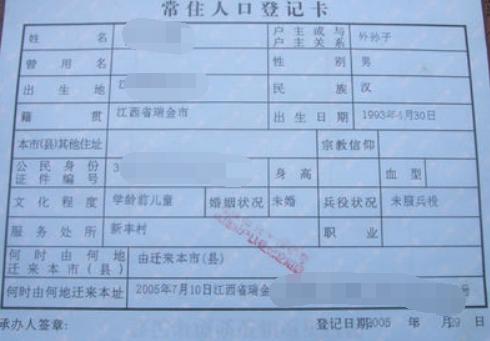 常住人口登记卡
姓名 户主或与户主关系 外孙子
曾用名 性别 男
出生地 江 民族 汉
籍贯 江西省瑞金市 出生日期 1993年4月30日
本市(县)其他住址 宗教信仰
公民身份证件编号 3 身高 血型
文化程度 学龄前儿童 婚姻状况 未婚 兵役状况 未服兵役
服务处所 新丰村 职业
何时由何地迁来本市(县) 由迁来本市(县)
何时由何地迁来本址 2005年7月10日江西省瑞金 号
承办人签章: 登记日期:2005 年 月 日